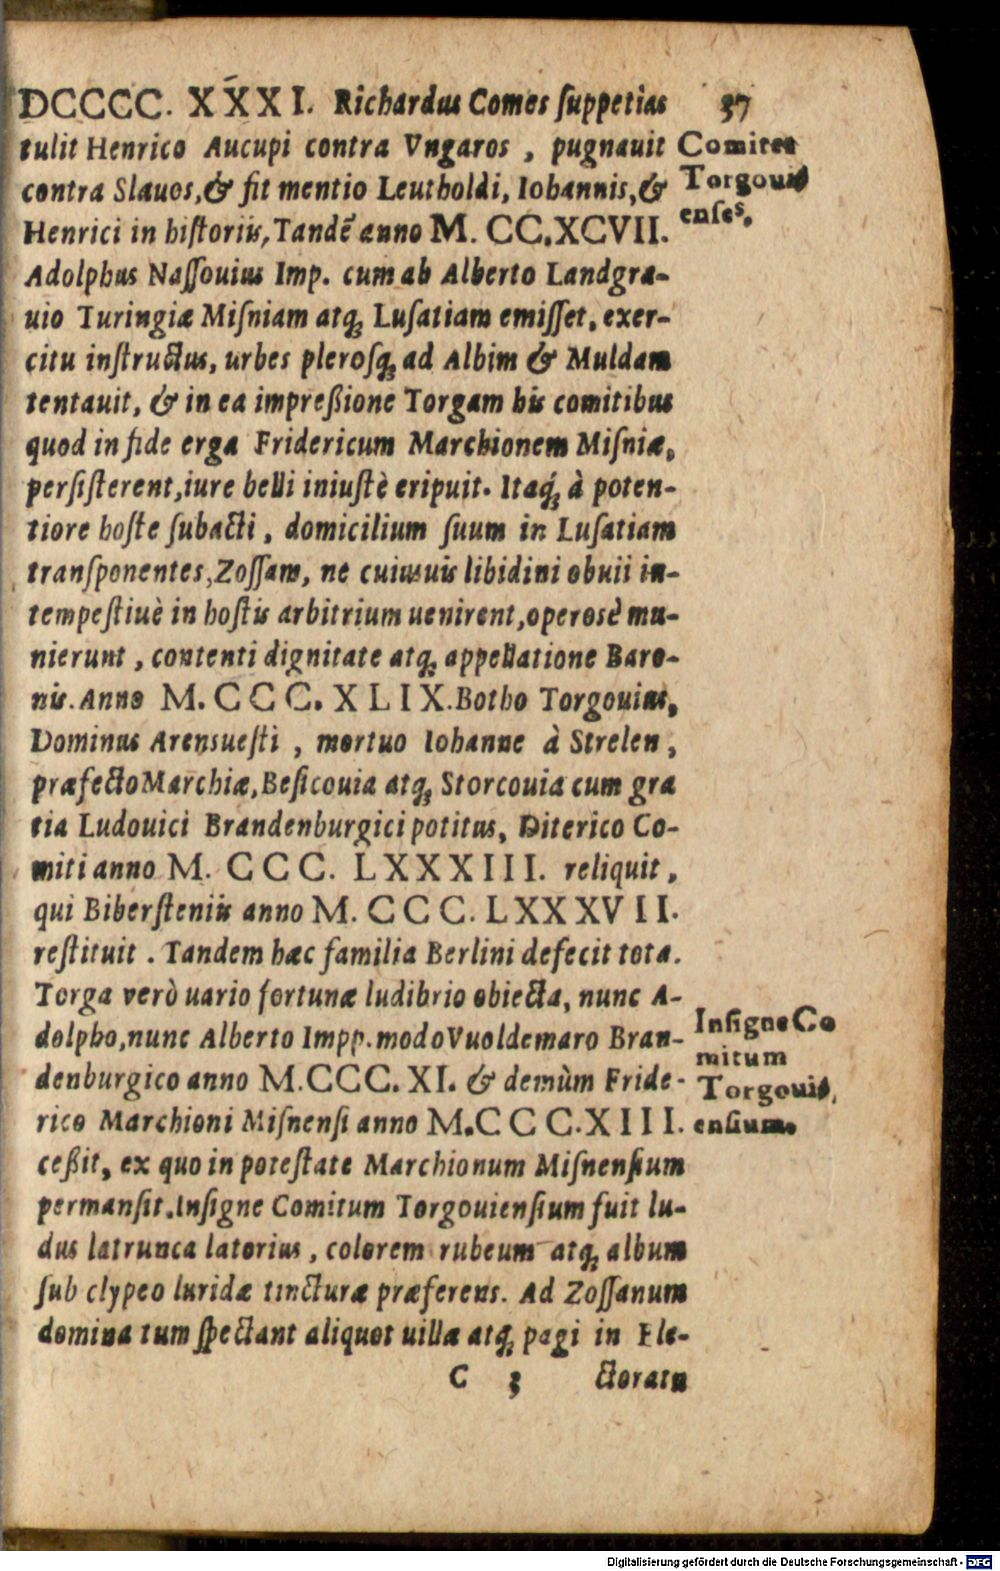 DCCCC. XXXI. Richardus Comes ſuppetias
37
tulit Henrico Aucupi contra Vngaros, pugnauit
contra Slauos, & fit mentio Leutholdi, Iohannis, &
Henrici in hiſtoriis, Tandẽ anno M. CC. XCVII.
Comites
Torgoui
enſes.
Adolphus Naſſouius Imp. cum ab Alberto Landgra-
uio Turingiæ Miſniam atq; Luſatiam emiſſet, exer-
citu inſtructus, urbes pleroſq; ad Albim & Muldam
tentauit, & in ea impreßione Torgam his comitibus
quod in fide erga Fridericum Marchionem Miſniæ,
perſiſterent, iure belli iniuſtè eripuit. Itaq; à poten-
tiore hoſte ſubacti, domicilium ſuum in Luſatiam
tranſponentes, Zoſſam, ne cuiusuis libidini obuii in-
tempeſtiuè in hoſtis arbitrium uenirent, operosè mu-
nierunt, contenti dignitate atq; appellatione Baro-
nis. Anno M. CCC. XLIX. Botho Torgouius,
Dominus Arensueſti, mortuo Iohanne à Strelen,
præfecto Marchiæ, Beſicouia atq; Storcouia cum gra
tia Ludouici Brandenburgici potitus, Diterico Co-
miti anno M. CCC. LXXXIII. reliquit,
qui Biberſteniis anno M. CCC. LXXXVII.
reſtituit. Tandem hæc familia Berlini defecit tota.
Torga verò uario fortunæ ludibrio obiecta, nunc A-
dolpho, nunc Alberto Impp. modo Vuoldemaro Bran-
denburgico anno M.CCC. XI. & demùm Fride-
rico Marchioni Miſnenſi anno M.CCC.XIII.
Inſigne Co
mitum
Torgoui
enſium.
ceßit, ex quo in poteſtate Marchionum Miſnenſium
permanſit. Inſigne Comitum Torgouienſium fuit lu-
dus latrunca latorius, colorem rubeum atq; album
ſub clypeo luridæ tincturæ præferens. Ad Zoſſanum
domina tum ſpectant aliquot uillæ atq; pagi in Ele-
C 3
ctoratu
Digitalisierung gefördert durch die Deutsche Forschungsgemeinschaft - DFG